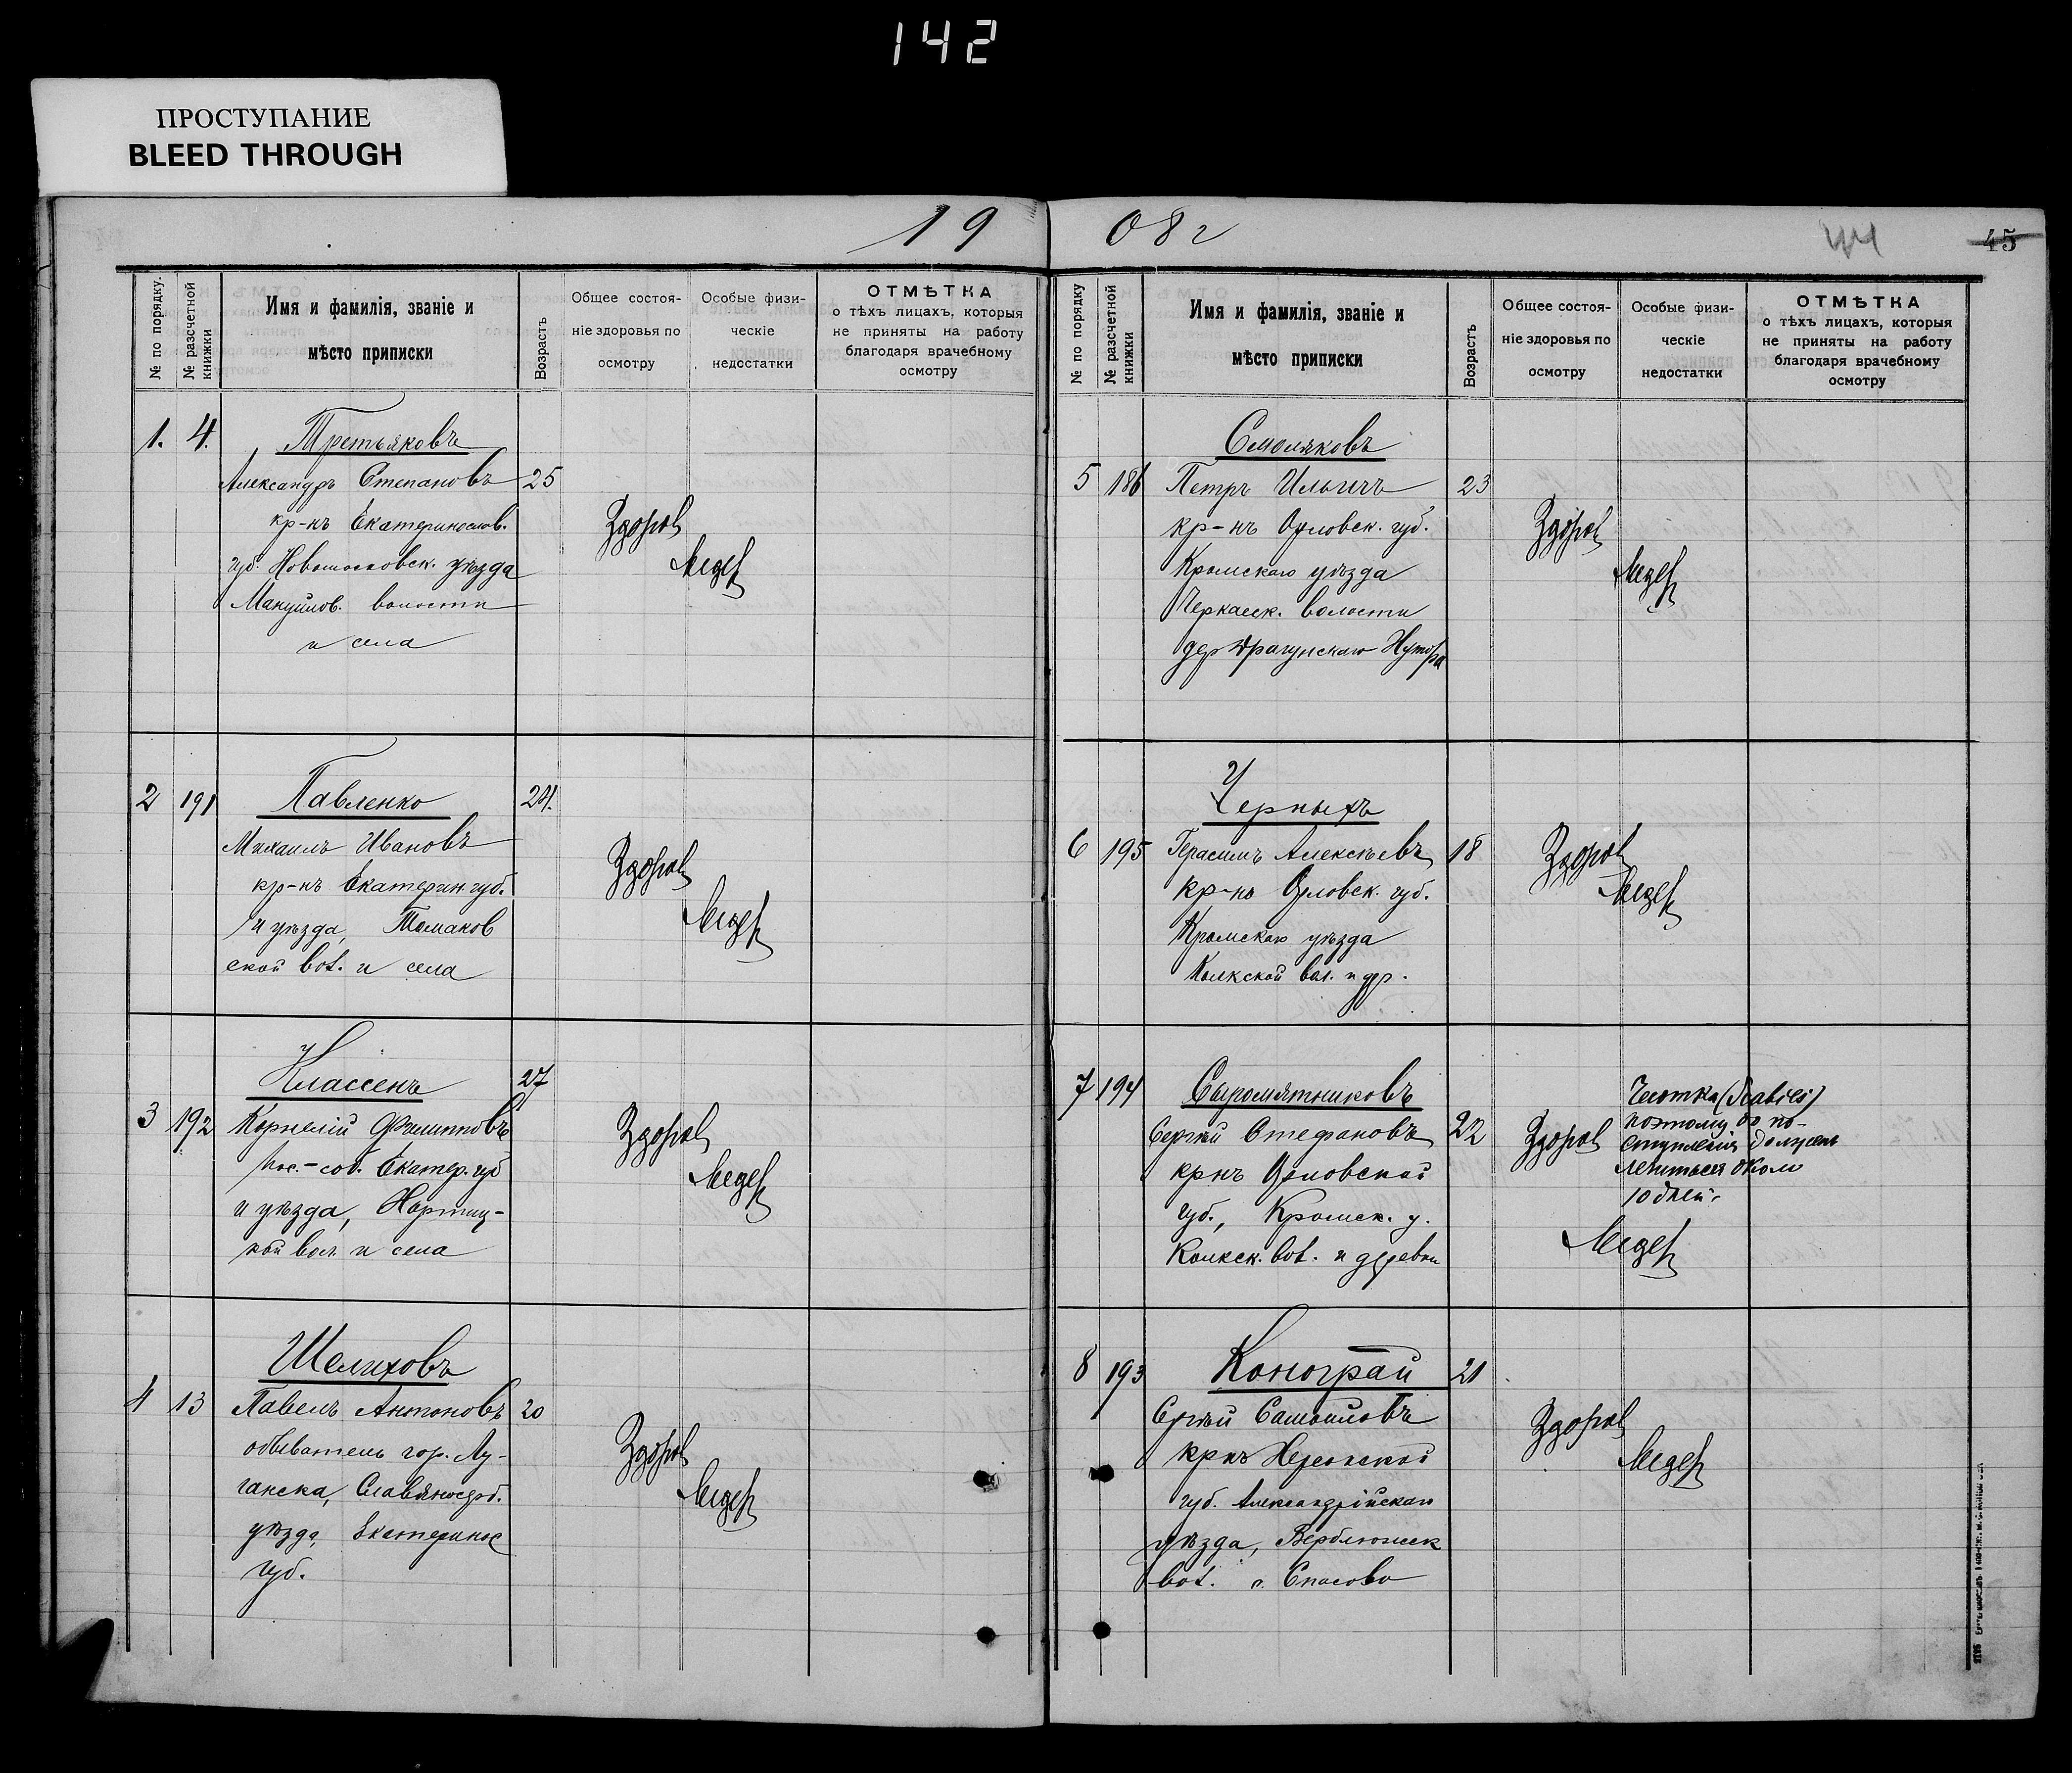 142
ПРОСТУПАНИЕ
BLEED THROUGH
19 08 г
44 45
№ по порядку.
№ разсчетной книжки
Имя и фамилія, званіе и
мѣсто приписки
Возрастъ
Общее состоя-
ніе здоровья по
осмотру
Особые физи-
ческіе
недостатки
ОТМѢТКА
о тѣхъ лицахъ, которыя
не приняты на работу
благодаря врачебному
осмотру
1. 4. Третьяковъ
Александръ Степановъ 25
кр-нъ Екатеринослав.
губ. Новомосковск. уѣзда
Мануйлов. волости
и села
Здоров
2 191 Павленко 24.
Михаилъ Ивановъ
кр-нъ Екатерин. губ.
и уѣзда, Томаков
ской вол. и села
Здоров
Классенъ 27
3 192 Корнелій Филипповъ
пос.-соб. Екатер. губ
и уѣзда, Хортиц-
кой вол. и села
Здоров
Шелиховъ
4 13 Павелъ Антоновъ 20
обыватель гор. Лу-
ганска, Славяносерб.
уѣзда, Екатеринос
губ.
Здоров
№ по порядку
№ разсчетной книжки
Имя и фамилія, званіе и
мѣсто приписки
Возрастъ
Общее состоя-
ніе здоровья по
осмотру
Особые физи-
ческіе
недостатки
ОТМѢТКА
о тѣхъ лицахъ, которыя
не приняты на работу
благодаря врачебному
осмотру
Смоляковъ
5 186 Петръ Ильичъ 23
кр-нъ Орловск. губ.
Кромскаго уѣзда
Черкасск. волости
дер Драгунскаго Хутора
Здоров
Черныхъ
6 195 Герасимъ Алексѣевъ 18
кр-нъ Орловск. губ.
Кромскаго уѣзда
вол. и дер.
Здоров
7 194 Сыромятниковъ
Сергѣй Стефановъ 22
крнъ Орловской
губ., Кромск. у.
вол. и деревни
Здоров
Чесотка (Scabies)
поэтому до по-
ступленія должен
лечиться около
10 дней.
8 193 Коноград 21
Сергѣй Самойловъ
крнъ Херсонской
губ. Александрійскаго
уѣзда, Верблюжск
вол. с. Спасово
Здоров